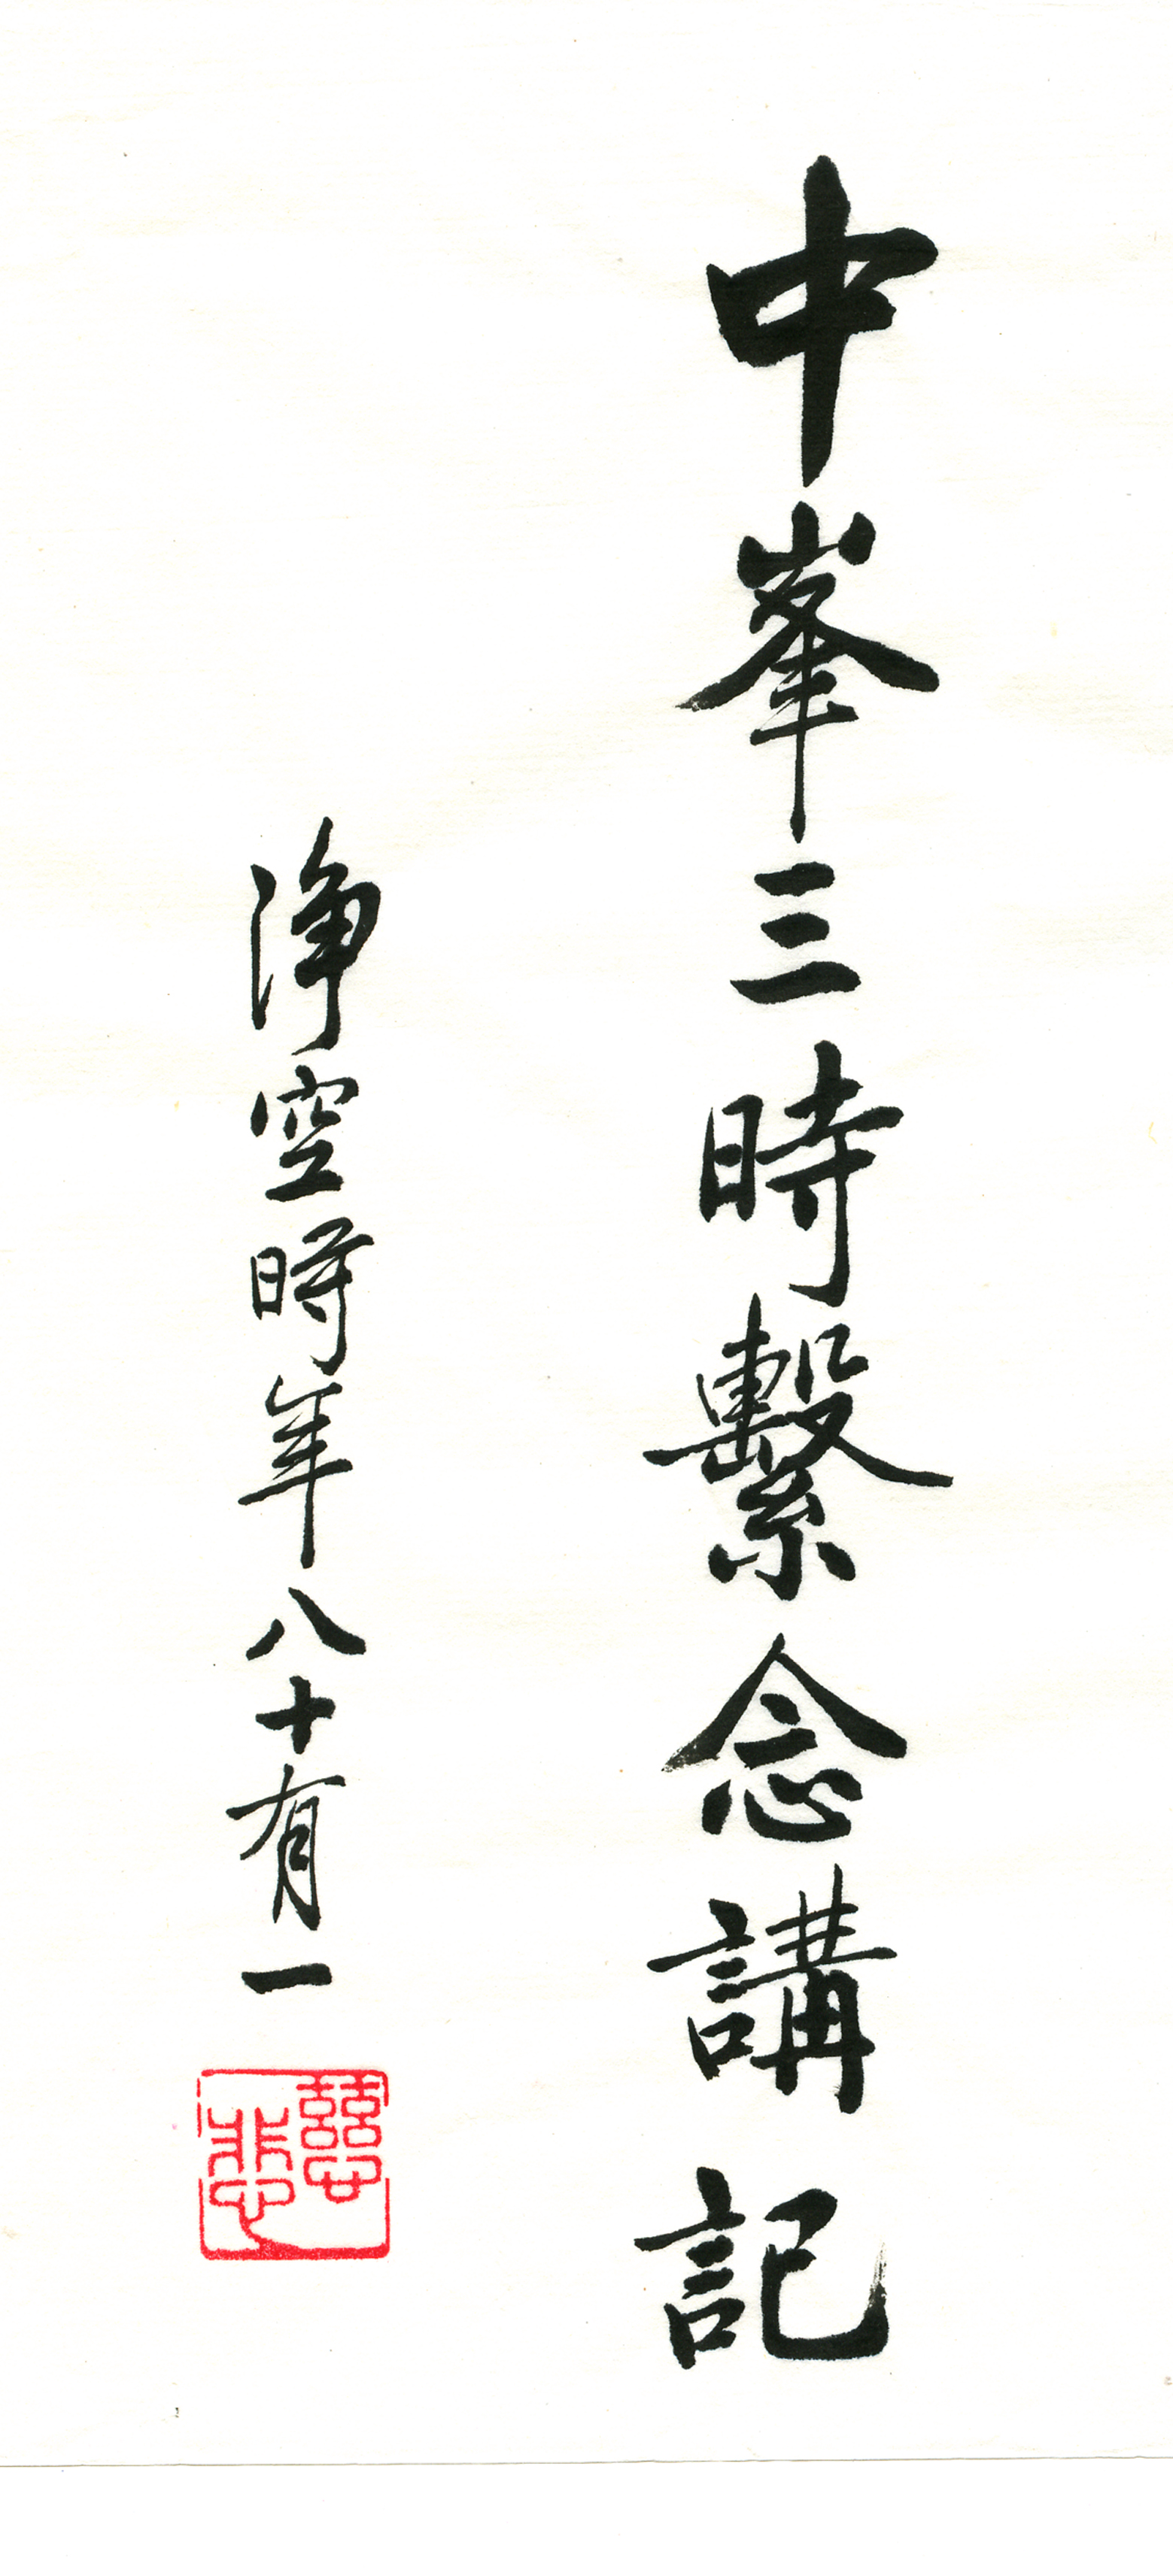 中峯三時繫念講記
淨空時年八十有一
慈悲